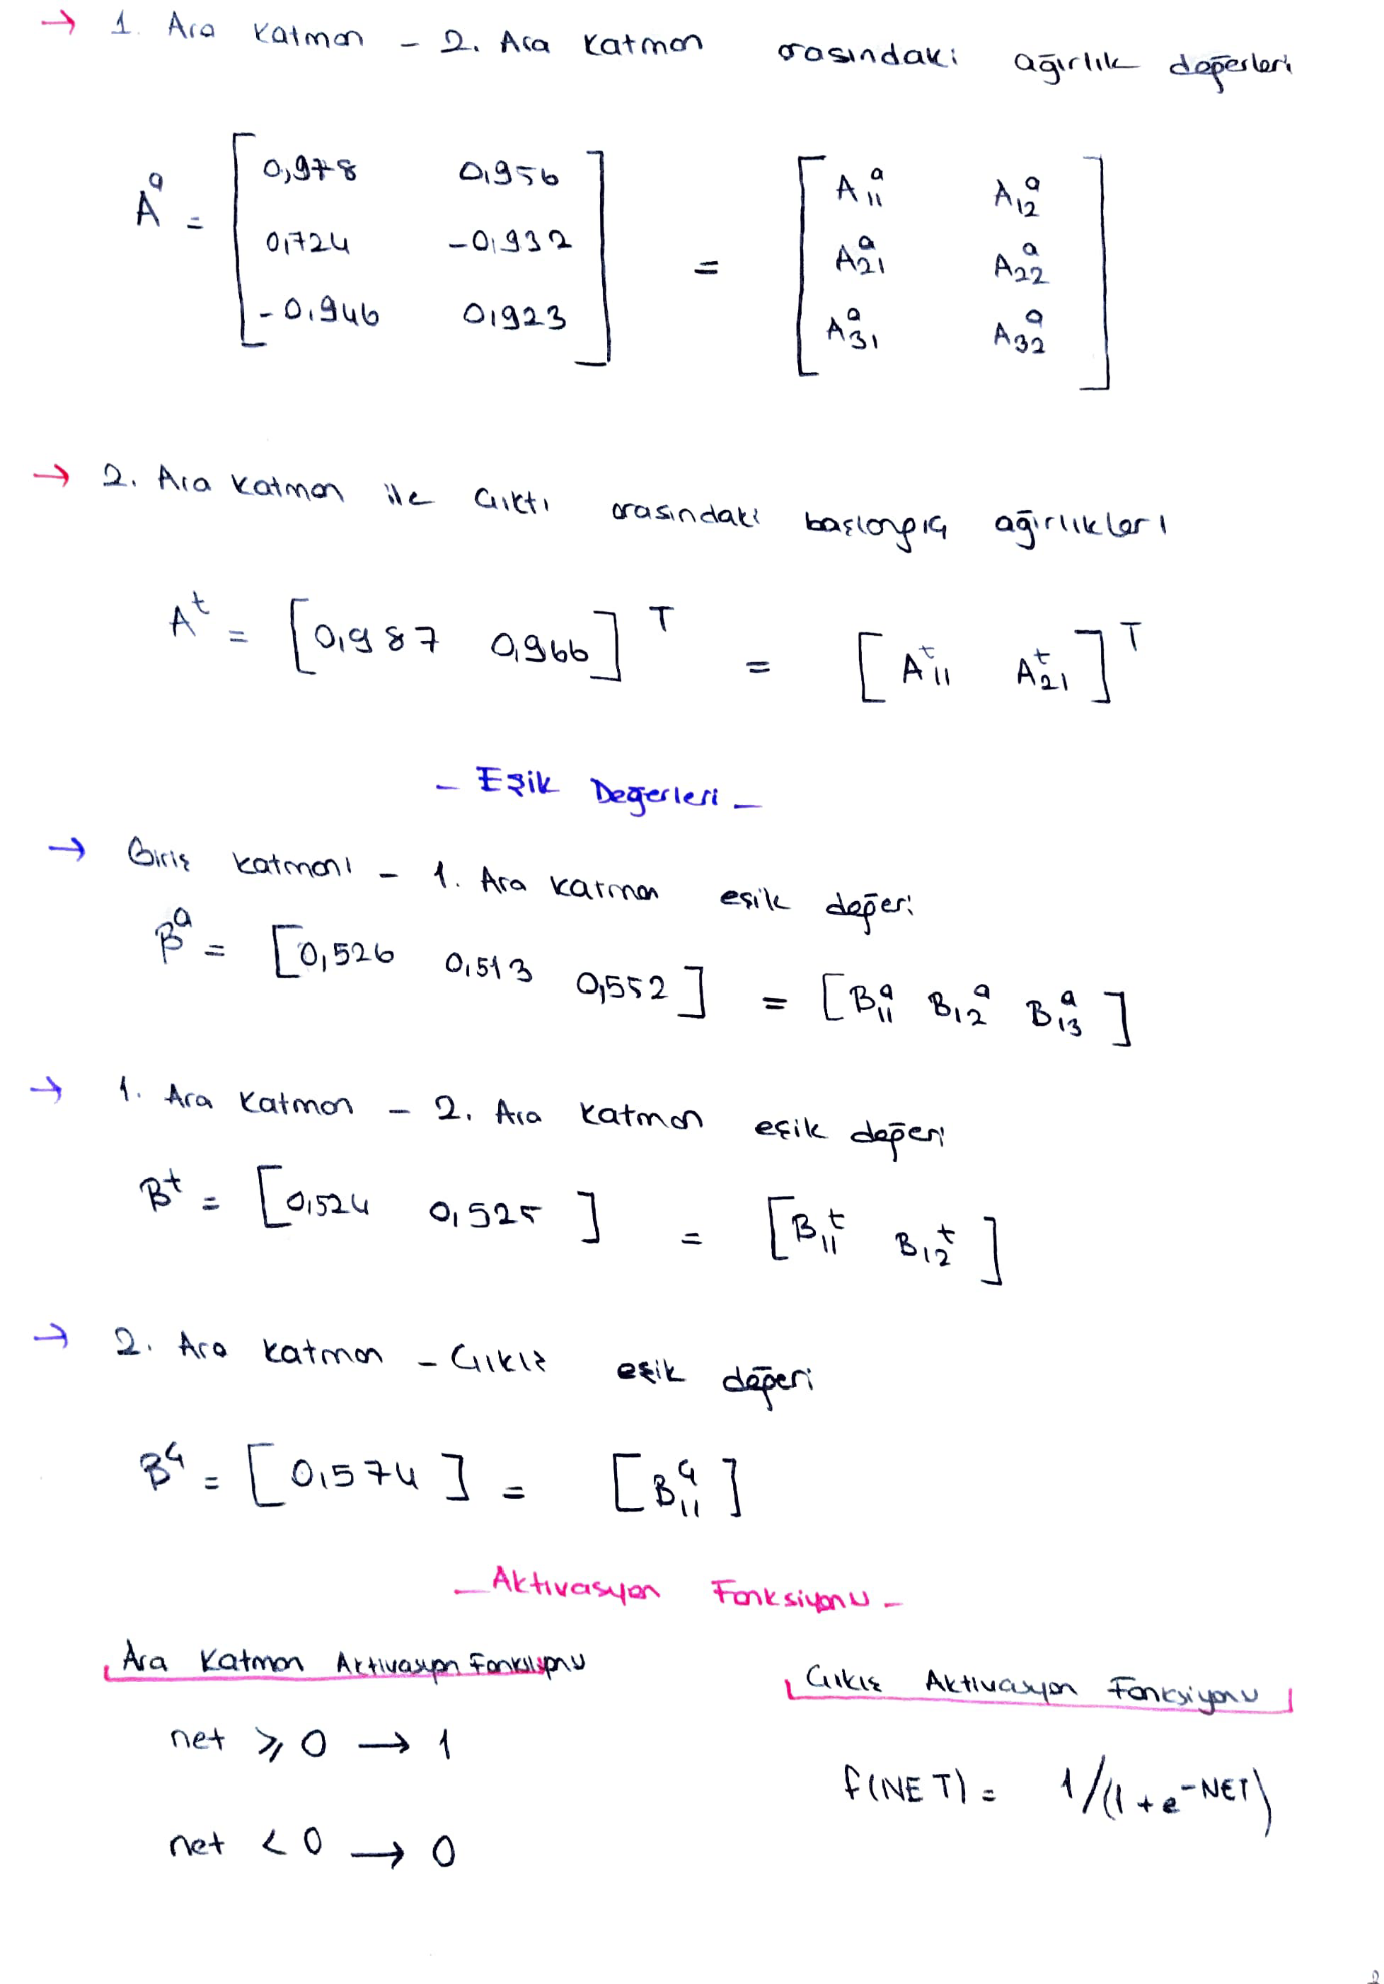 → 1. Ara Katman - 2. Ara Katman arasındaki ağırlık değerleri
A^a = [ 0,978 0,956 ] = [ A11^a A12^a ]
[ 0,724 -0,932 ] [ A21^a A22^a ]
[ -0,946 0,923 ] [ A31^a A32^a ]
→ 2. Ara Katman ile Çıktı arasındaki başlangıç ağırlıkları
A^t = [ 0,987 0,966 ]^T = [ A11^t A21^t ]^T
- Eşik Değerleri -
→ Giriş katmanı - 1. Ara katman eşik değeri
B^a = [ 0,526 0,513 0,552 ] = [ B11^a B12^a B13^a ]
→ 1. Ara Katman - 2. Ara Katman eşik değeri
B^t = [ 0,524 0,525 ] = [ B11^t B12^t ]
→ 2. Ara katman - Çıkış eşik değeri
B^ç = [ 0,574 ] = [ B11^ç ]
- Aktivasyon Fonksiyonu -
Ara Katman Aktivasyon Fonksiyonu
Çıkış Aktivasyon Fonksiyonu
net ≥ 0 → 1
f(NET) = 1/(1+e^-NET)
net < 0 → 0